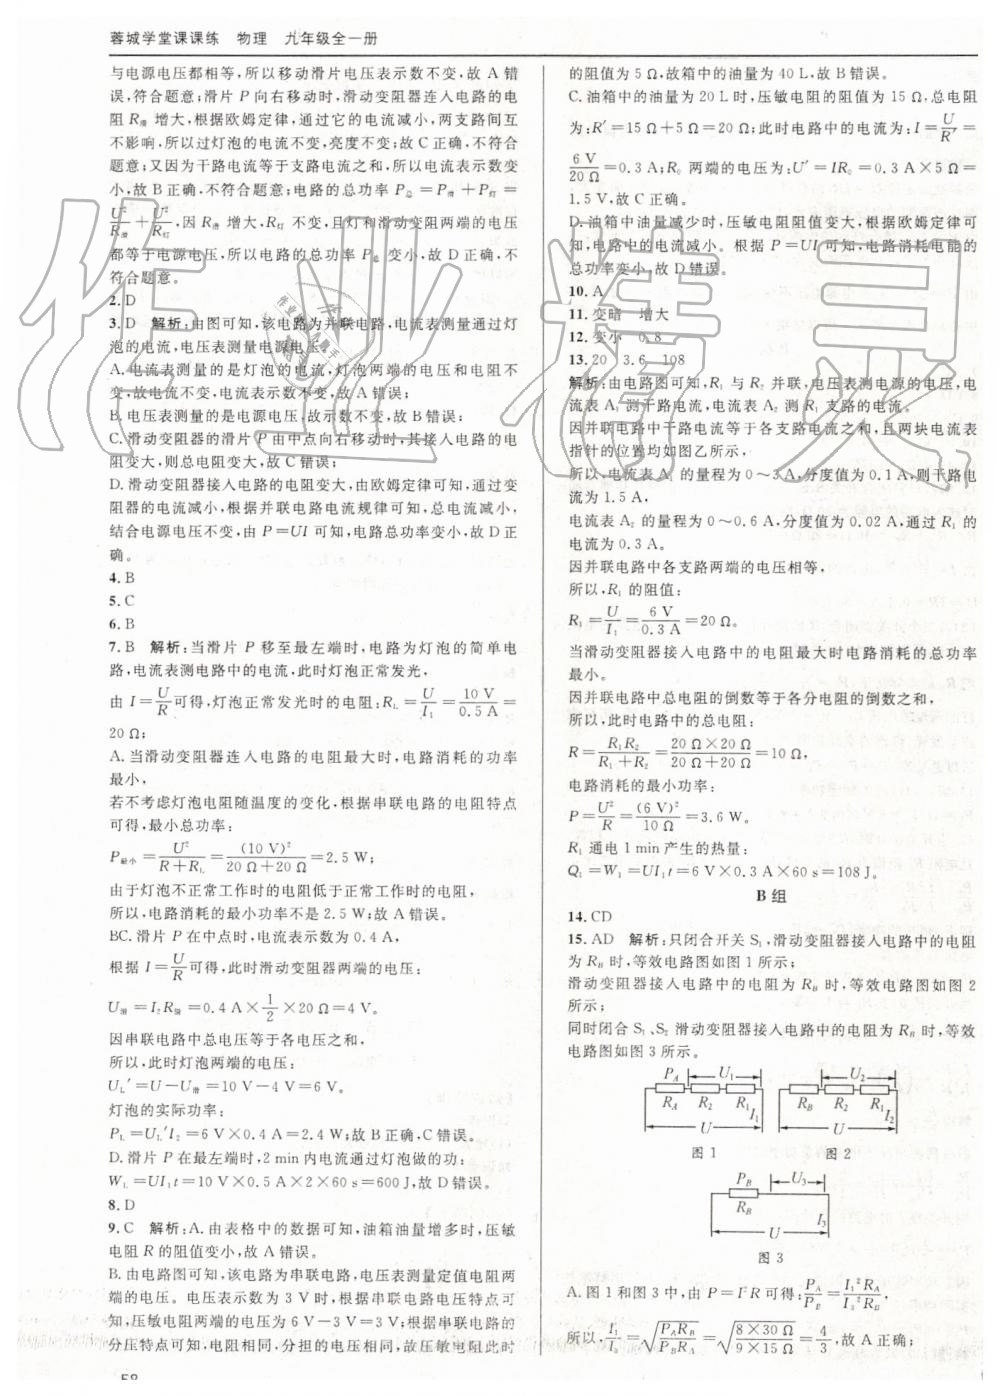 蓉城学堂课课练　物理　九年级全一册
与电源电压都相等,所以移动滑片电压表示数不变,故 A 错
误,符合题意;滑片 P 向右移动时,滑动变阻器连入电路的电
阻 R滑 增大,根据欧姆定律,通过它的电流减小,两支路间互
不影响,所以过灯泡的电流不变,亮度不变;故 C 正确,不符合
题意;又因为干路电流等于支路电流之和,所以电流表示数变
小,故 B 正确,不符合题意;电路的总功率 P总 = P滑 + P灯 =
U²/R滑 + U²/R灯,因 R滑 增大,R灯 不变,且灯和滑动变阻两端的电压
都等于电源电压,所以电路的总功率 P总 变小,故 D 正确,不
符合题意。
2. D
3. D　解析:由图可知,该电路为并联电路,电流表测量通过灯
泡的电流,电压表测量电源电压。
A. 电流表测量的是灯泡的电流,灯泡两端的电压和电阻不
变,故电流不变,电流表示数不变,故 A 错误;
B. 电压表测量的是电源电压,故示数不变,故 B 错误;
C. 滑动变阻器的滑片 P 由中点向右移动时,其接入电路的电
阻变大,则总电阻变大,故 C 错误;
D. 滑动变阻器接入电路的电阻变大,由欧姆定律可知,通过变
阻器的电流减小,根据并联电路电流规律可知,总电流减小,
结合电源电压不变,由 P=UI 可知,电路总功率变小,故 D 正
确。
4. B
5. C
6. B
7. B　解析:当滑片 P 移至最左端时,电路为灯泡的简单电
路,电流表测电路中的电流,此时灯泡正常发光,
由 I = U/R 可得,灯泡正常发光时的电阻:RL = U/I₁ = 10 V/0.5 A =
20 Ω;
A. 当滑动变阻器连入电路的电阻最大时,电路消耗的功率
最小,
若不考虑灯泡电阻随温度的变化,根据串联电路的电阻特点
可得,最小总功率:
P最小 = U²/(R+RL) = (10 V)²/(20 Ω+20 Ω) = 2.5 W;
由于灯泡不正常工作时的电阻低于正常工作时的电阻,
所以,电路消耗的最小功率不是 2.5 W;故 A 错误。
BC. 滑片 P 在中点时,电流表示数为 0.4 A,
根据 I = U/R 可得,此时滑动变阻器两端的电压:
U滑 = I₂R滑 = 0.4 A × 1/2 × 20 Ω = 4 V;
因串联电路中总电压等于各电压之和,
所以,此时灯泡两端的电压:
UL′ = U − U滑 = 10 V − 4 V = 6 V。
灯泡的实际功率:
PL = UL′I₂ = 6 V × 0.4 A = 2.4 W;故 B 正确,C 错误。
D. 滑片 P 在最左端时,2 min 内电流通过灯泡做的功:
WL = UI₁t = 10 V × 0.5 A × 2 × 60 s = 600 J,故 D 错误。
8. D
9. C　解析:A. 由表格中的数据可知,油箱油量增多时,压敏
电阻 R 的阻值变小,故 A 错误。
B. 由电路图可知,该电路为串联电路,电压表测量定值电阻两
端的电压。电压表示数为 3 V 时,根据串联电路电压特点可
知,压敏电阻两端的电压为 6 V−3 V=3 V;根据串联电路的
分压特点可知,电阻相同,分担的电压相同,故压敏电阻此时
58
的阻值为 5 Ω,故箱中的油量为 40 L,故 B 错误。
C. 油箱中的油量为 20 L 时,压敏电阻的阻值为 15 Ω,总电阻
为:R′=15 Ω+5 Ω=20 Ω;此时电路中的电流为:I = U/R′ =
6 V/20 Ω = 0.3 A;R₀ 两端的电压为:U′=IR₀=0.3 A×5 Ω=
1.5 V,故 C 正确。
D. 油箱中油量减少时,压敏电阻阻值变大,根据欧姆定律可
知,电路中的电流减小。根据 P=UI 可知,电路消耗电能的
总功率变小,故 D 错误。
10. A
11. 变暗　增大
12. 变小　0.8
13. 20　3.6　108
解析:由电路图可知,R₁ 与 R₂ 并联,电压表测电源的电压,电
流表 A₁ 测干路电流,电流表 A₂ 测 R₁ 支路的电流。
因并联电路中干路电流等于各支路电流之和,且两块电流表
指针的位置均如图乙所示,
所以,电流表 A₁ 的量程为 0～3 A,分度值为 0.1 A,则干路电
流为 1.5 A,
电流表 A₂ 的量程为 0～0.6 A,分度值为 0.02 A,通过 R₁ 的
电流为 0.3 A。
因并联电路中各支路两端的电压相等,
所以,R₁ 的阻值:
R₁ = U/I₁ = 6 V/0.3 A = 20 Ω。
当滑动变阻器接入电路中的电阻最大时电路消耗的总功率
最小。
因并联电路中总电阻的倒数等于各分电阻的倒数之和,
所以,此时电路中的总电阻:
R = R₁R₂/(R₁+R₂) = (20 Ω×20 Ω)/(20 Ω+20 Ω) = 10 Ω,
电路消耗的最小功率:
P = U²/R = (6 V)²/10 Ω = 3.6 W。
R₁ 通电 1 min 产生的热量:
Q₁ = W₁ = UI₁t = 6 V×0.3 A×60 s = 108 J。
B 组
14. CD
15. AD　解析:只闭合开关 S₁,滑动变阻器接入电路中的电阻
为 RB 时,等效电路图如图 1 所示;
滑动变阻器接入电路中的电阻为 RB 时,等效电路图如图 2
所示;
同时闭合 S₁、S₂ 滑动变阻器接入电路中的电阻为 RB 时,等效
电路图如图 3 所示。
PA U₁
RA R₂ R₁ I₁
U
图 1
U₂
RB R₂ R₁ I₂
U
图 2
PB U₃
RB I₃
U
图 3
A. 图 1 和图 3 中,由 P=I²R 可得:PA/PB = I₁²RA/I₃²RB,
所以,I₁/I₃ = √(PARB/PBRA) = √(8×30 Ω/9×15 Ω) = 4/3,故 A 正确;
作业精灵